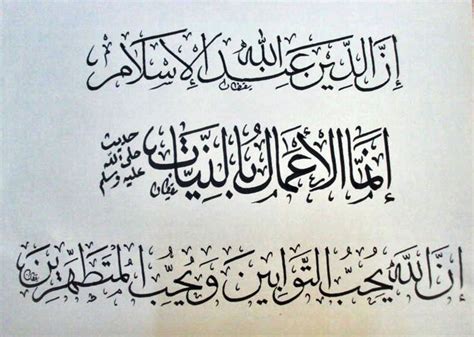 إن الدين عند الله الإسلام
إنما الأعمال بالنيات
حديث
صلى الله
عليه وسلم
إن الله يحب التوابين ويحب المتطهرين